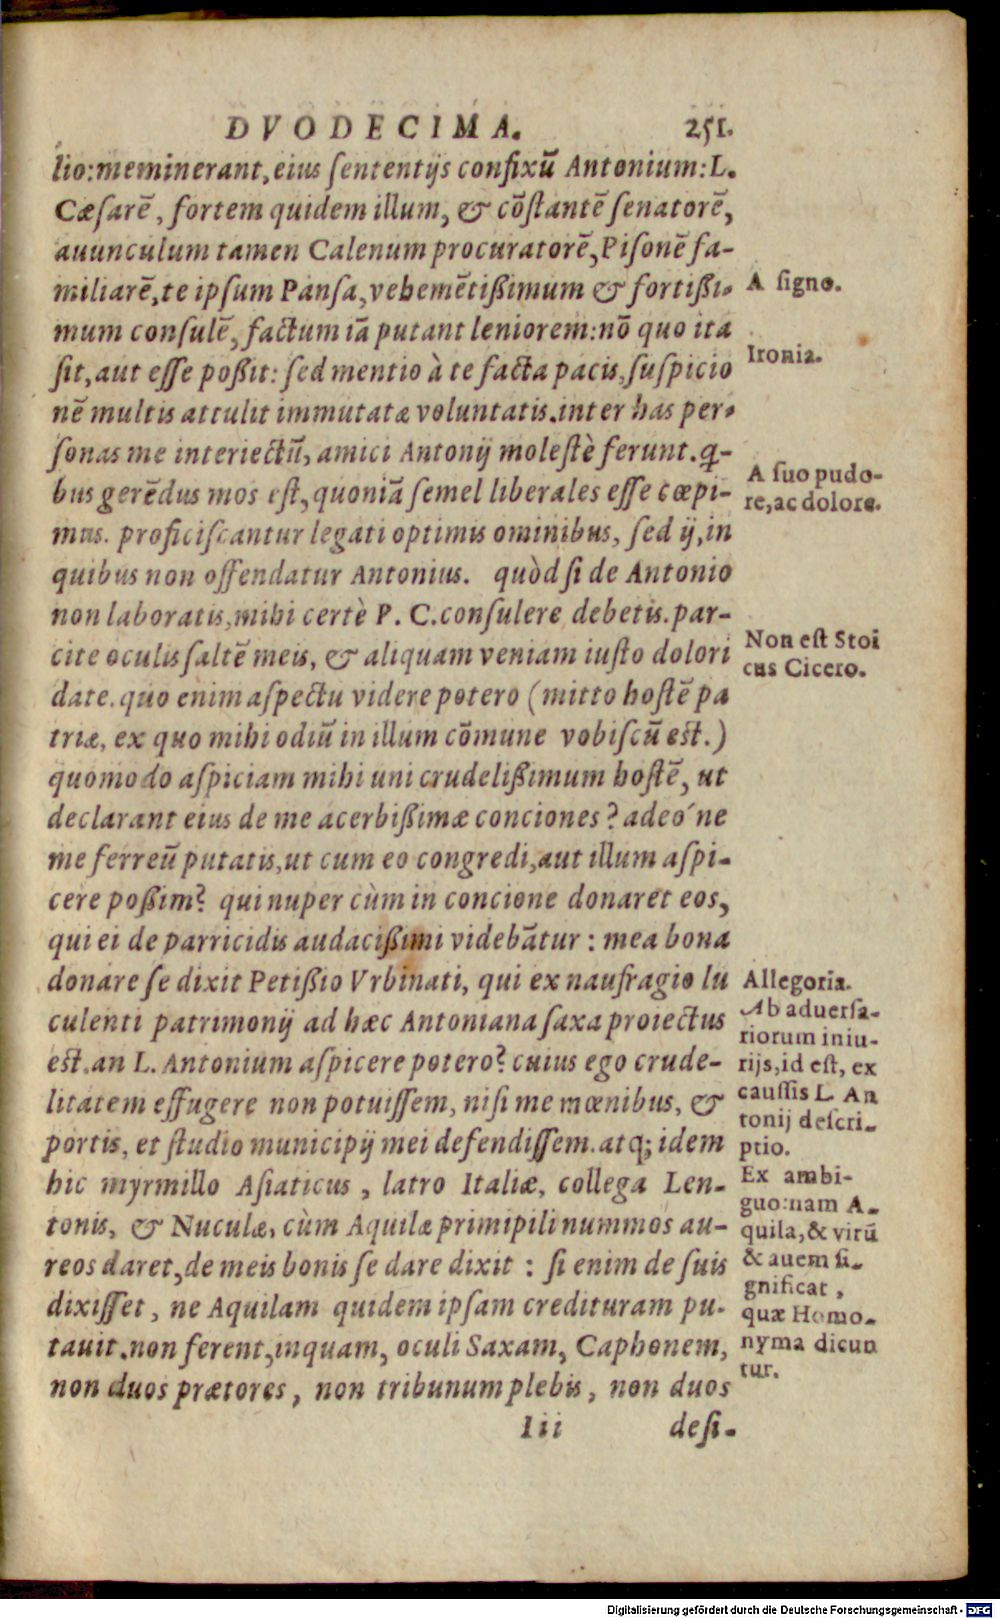 DVODECIMA. 251.
lio: meminerant, eius ſententijs confixũ Antonium: L.
Cæſarẽ, fortem quidem illum, & cõſtantẽ ſenatorẽ,
auunculum tamen Calenum procuratorẽ, Piſonẽ fa-
miliarẽ, te ipſum Panſa, vehemẽtißimum & fortißi-
mum conſulẽ, factum iã putant leniorem: nõ quo ita
ſit, aut eſſe poßit: ſed mentio à te facta pacis, ſuſpicio
nẽ multis attulit immutatæ voluntatis. inter has per-
ſonas me interiectũ, amici Antonij moleſtè ferunt. q-
bus gerẽdus mos eſt, quoniã ſemel liberales eſſe cœpi-
mus. proficiſcantur legati optimis ominibus, ſed ij, in
quibus non offendatur Antonius. quòd ſi de Antonio
non laboratis, mihi certè P. C. conſulere debetis. par-
cite oculis ſaltẽ meis, & aliquam veniam iuſto dolori
date. quo enim aſpectu videre potero (mitto hoſtẽ pa
triæ, ex quo mihi odiũ in illum cõmune vobiſcũ est.)
quomodo aſpiciam mihi uni crudelißimum hoſtẽ, ut
declarant eius de me acerbißimæ conciones? adeó ne
me ferreũ putatis, ut cum eo congredi, aut illum aſpi-
cere poßim? qui nuper cùm in concione donaret eos,
qui ei de parricidis audacißimi videbãtur: mea bona
donare ſe dixit Petißio Vrbinati, qui ex naufragio lu
culenti patrimonij ad hæc Antoniana ſaxa proiectus
est. an L. Antonium aſpicere potero? cuius ego crude-
litatem effugere non potuiſſem, niſi me mœnibus, &
portis, et ſtudio municipij mei defendiſſem. atq; idem
hic myrmillo Aſiaticus, latro Italiæ, collega Len-
tonis, & Nuculæ, cùm Aquilæ primipili nummos au-
reos daret, de meis bonis ſe dare dixit: ſi enim de ſuis
dixiſſet, ne Aquilam quidem ipſam credituram pu-
tauit. non ferent, inquam, oculi Saxam, Caphonem,
non duos prætores, non tribunum plebis, non duos
Iii deſi-
A ſigno.
Ironia.
A ſuo pudo-
re, ac dolore.
Non eſt Stoi
cus Cicero.
Allegoria.
Ab aduerſa-
riorum iniu-
rijs, id eſt, ex
cauſſis L. An
tonij deſcri-
ptio.
Ex ambi-
guo: nam A-
quila, & virũ
& auem ſi-
gnificat,
quæ Homo-
nyma dicun
tur.
Digitalisierung gefördert durch die Deutsche Forschungsgemeinschaft - DFG